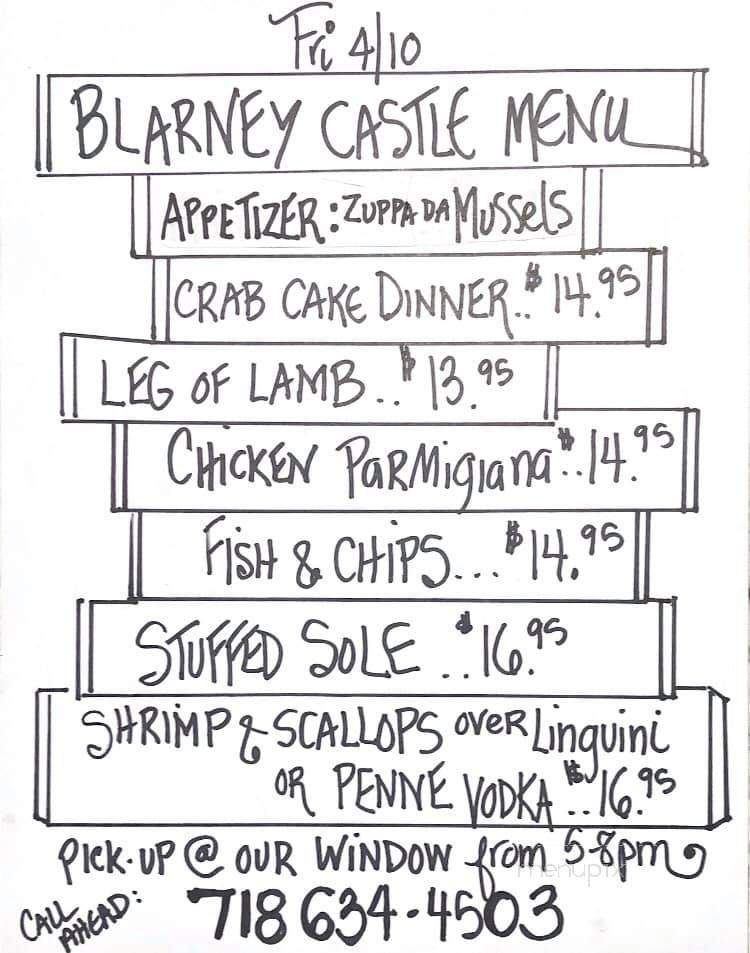 Fri 4/10
BLARNEY CASTLE MENU
APPETIZER: ZUPPA DA MUSSELS
CRAB CAKE DINNER.. $14.95
LEG OF LAMB.. $13.95
CHICKEN PARMIGIANA.. $14.95
FISH & CHIPS... $14.95
STUFFED SOLE.. $16.95
SHRIMP & SCALLOPS OVER Linguini
OR PENNE VODKA.. $16.95
PICK-UP @ OUR WINDOW from 5-8pm
menupix
CALL AHEAD: 718 634-4503